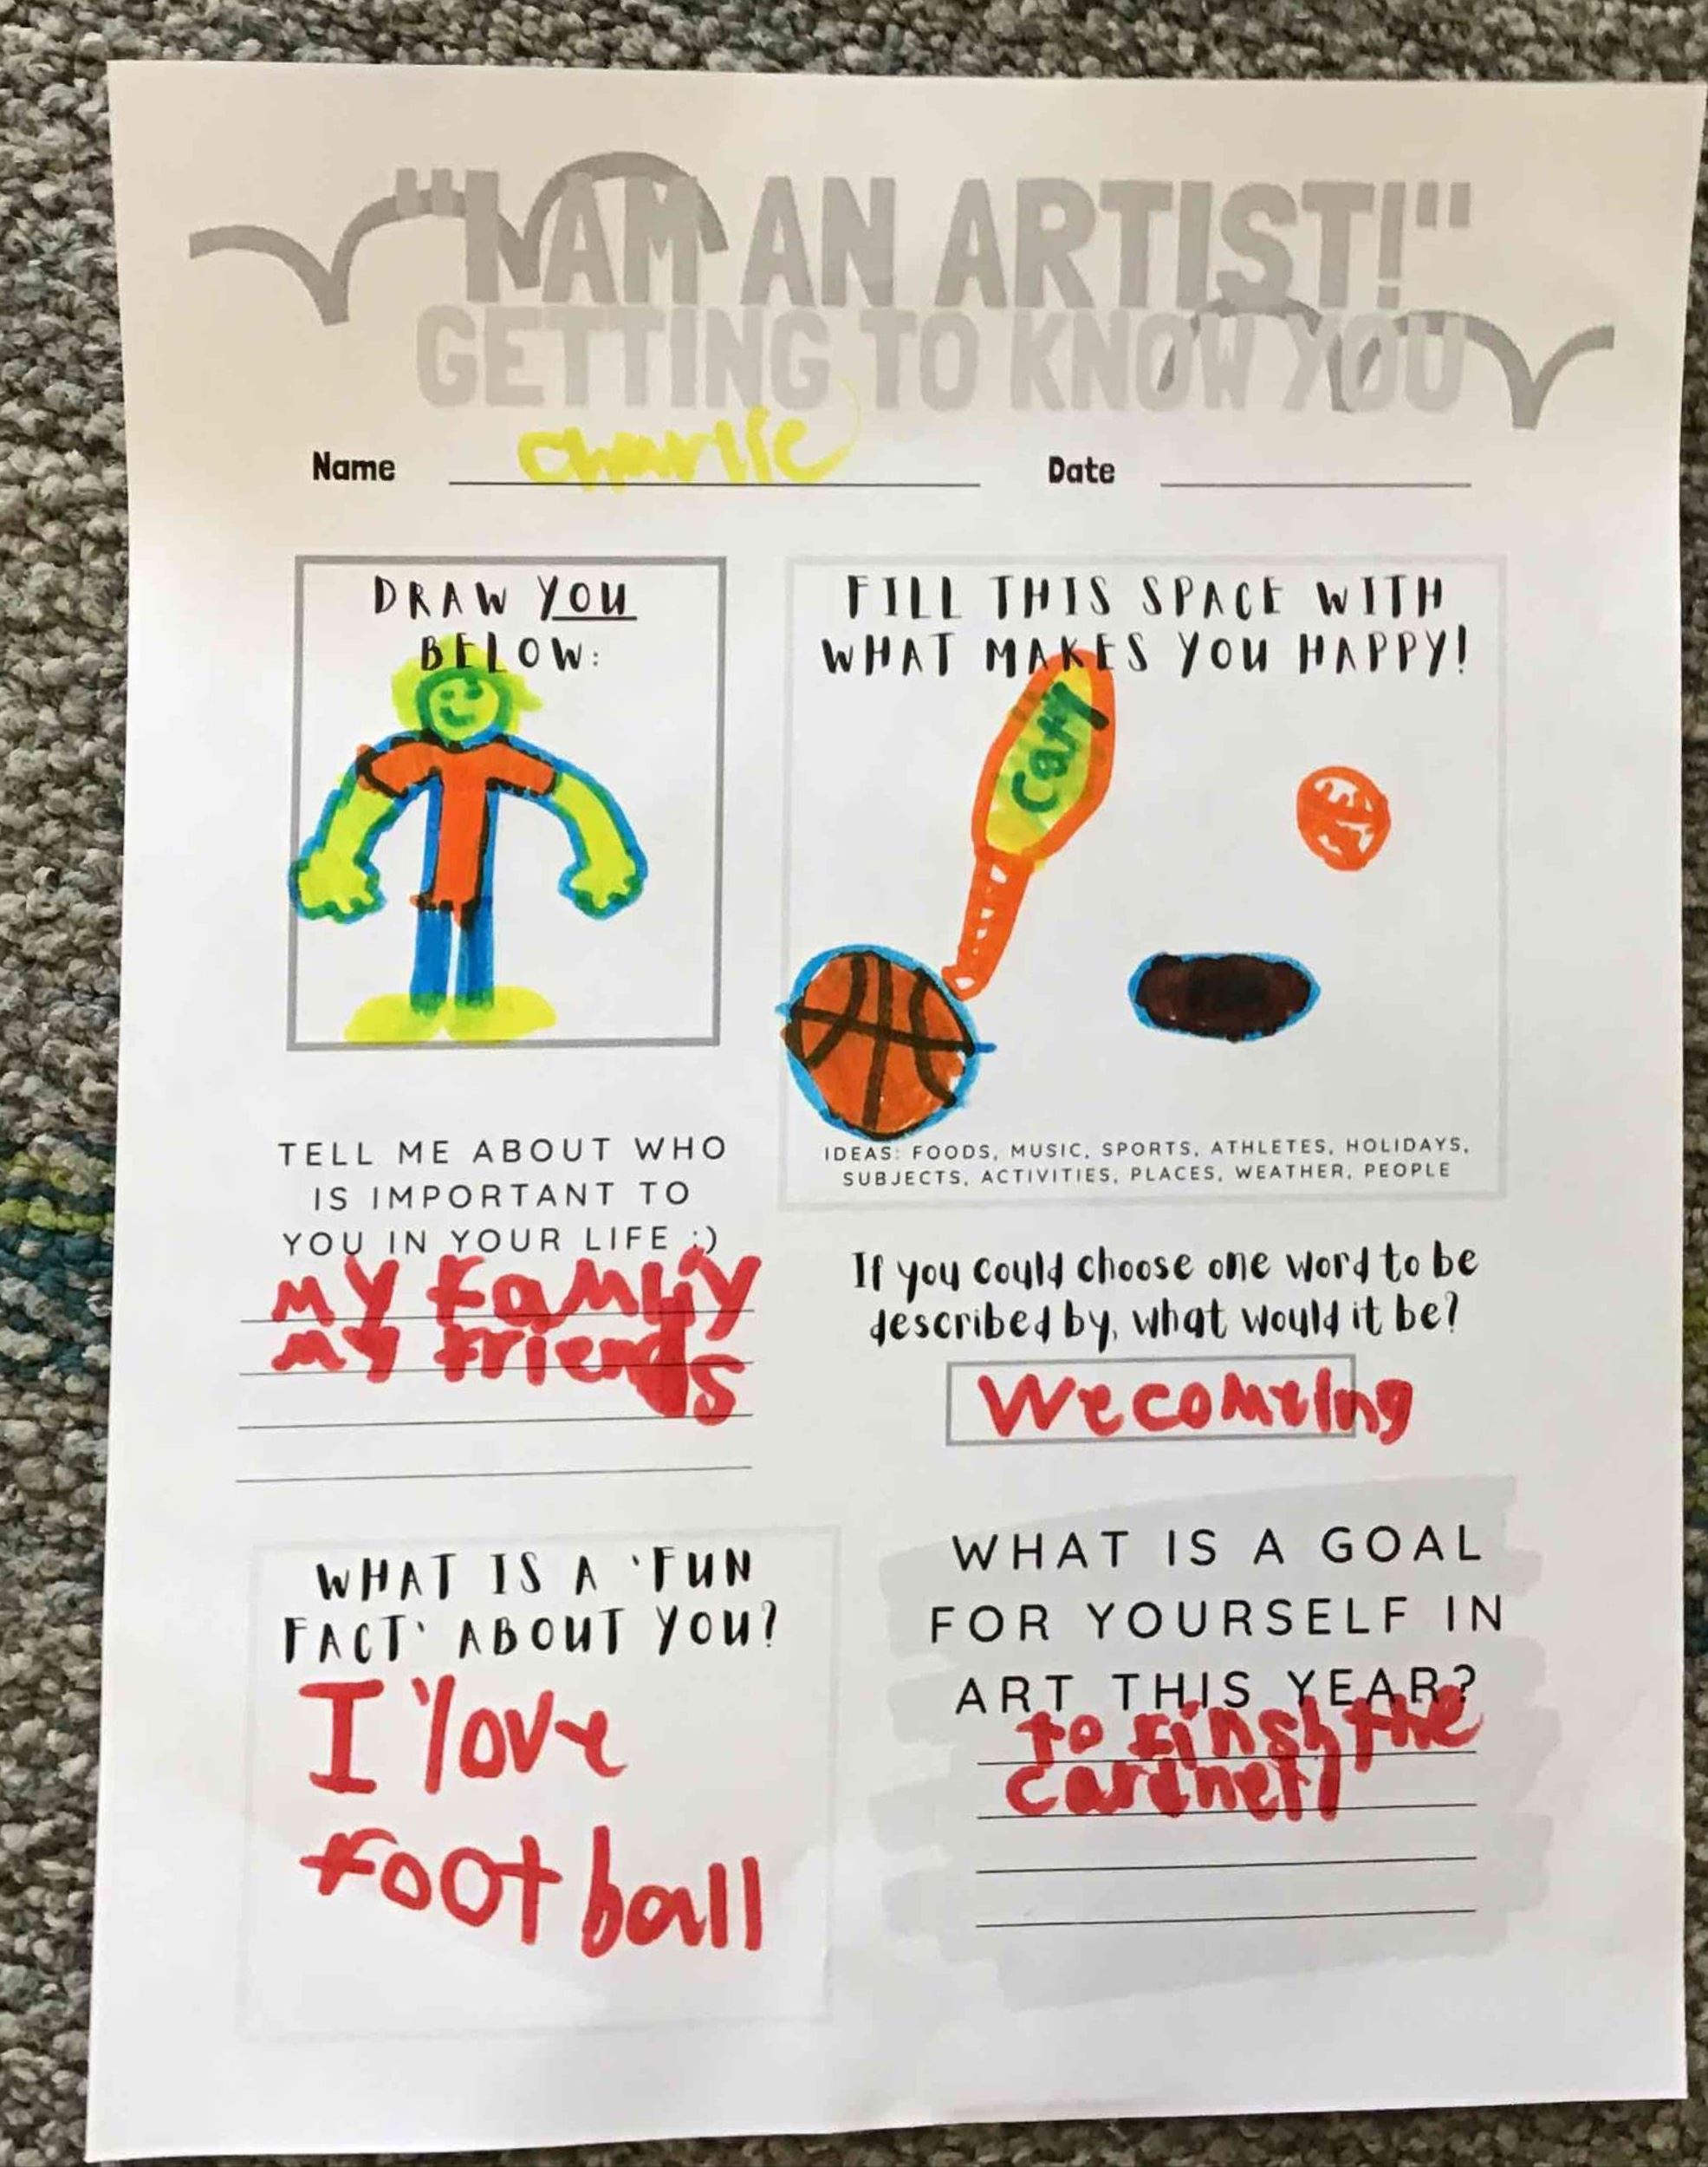 "I AM AN ARTIST!"
GETTING TO KNOW YOU
Name charlie Date
DRAW YOU
BELOW:
FILL THIS SPACE WITH
WHAT MAKES YOU HAPPY!
IDEAS: FOODS, MUSIC, SPORTS, ATHLETES, HOLIDAYS,
SUBJECTS, ACTIVITIES, PLACES, WEATHER, PEOPLE
TELL ME ABOUT WHO
IS IMPORTANT TO
YOU IN YOUR LIFE :)
my family
my friends
If you could choose one word to be
described by, what would it be?
Wecoming
WHAT IS A 'FUN
FACT' ABOUT YOU?
I love
football
WHAT IS A GOAL
FOR YOURSELF IN
ART THIS YEAR?
to finsh the